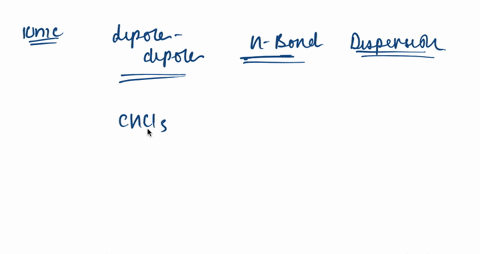 Ionic dipole- H-Bond Dispersion
dipole
CHCl3